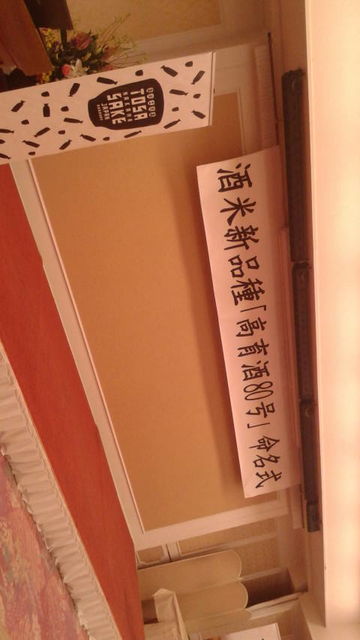 酒米新品種「高育酒80号」命名式
TOSA
SAKE
JAPAN